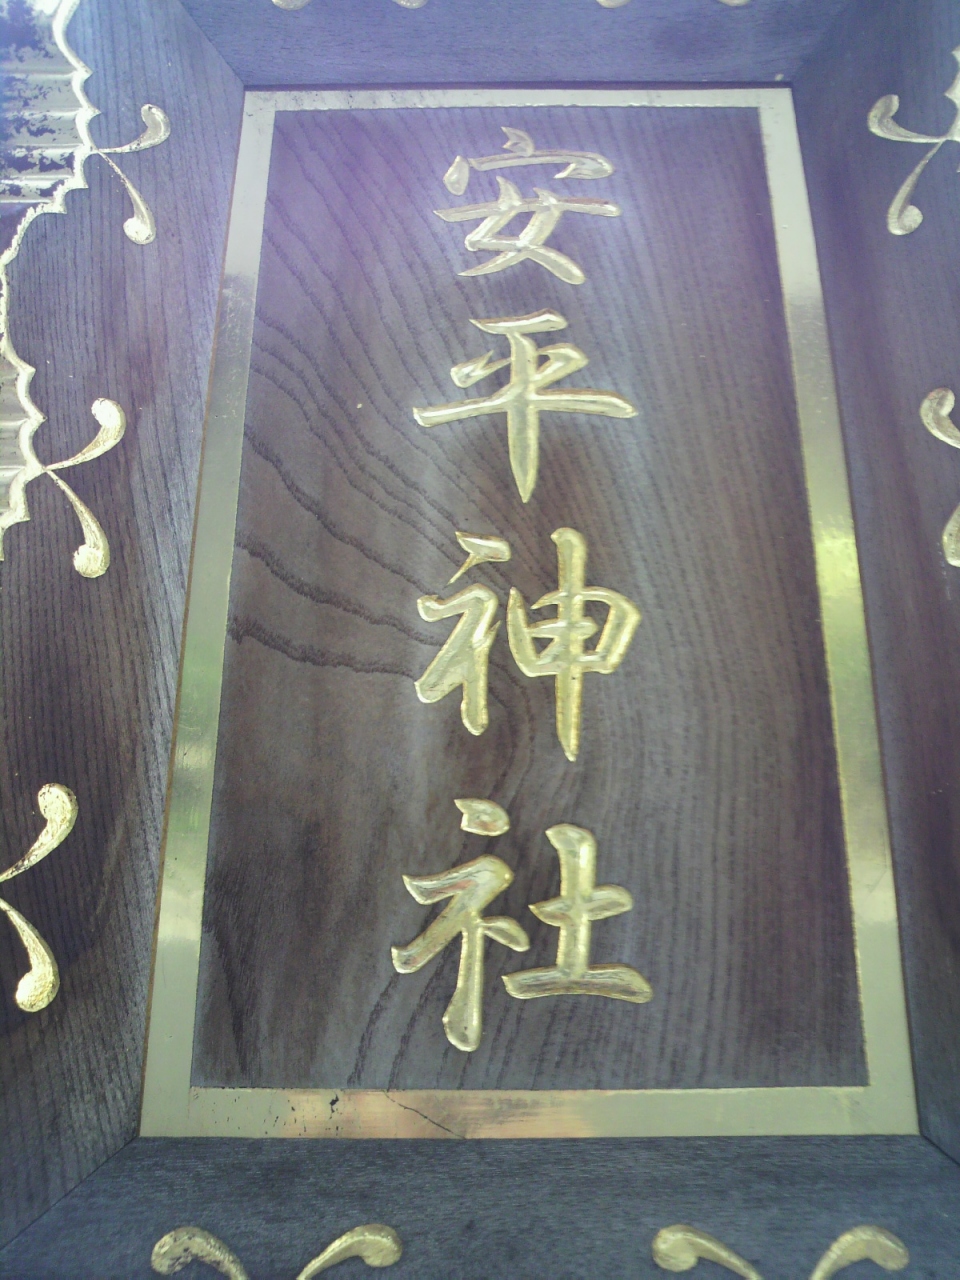 安平神社